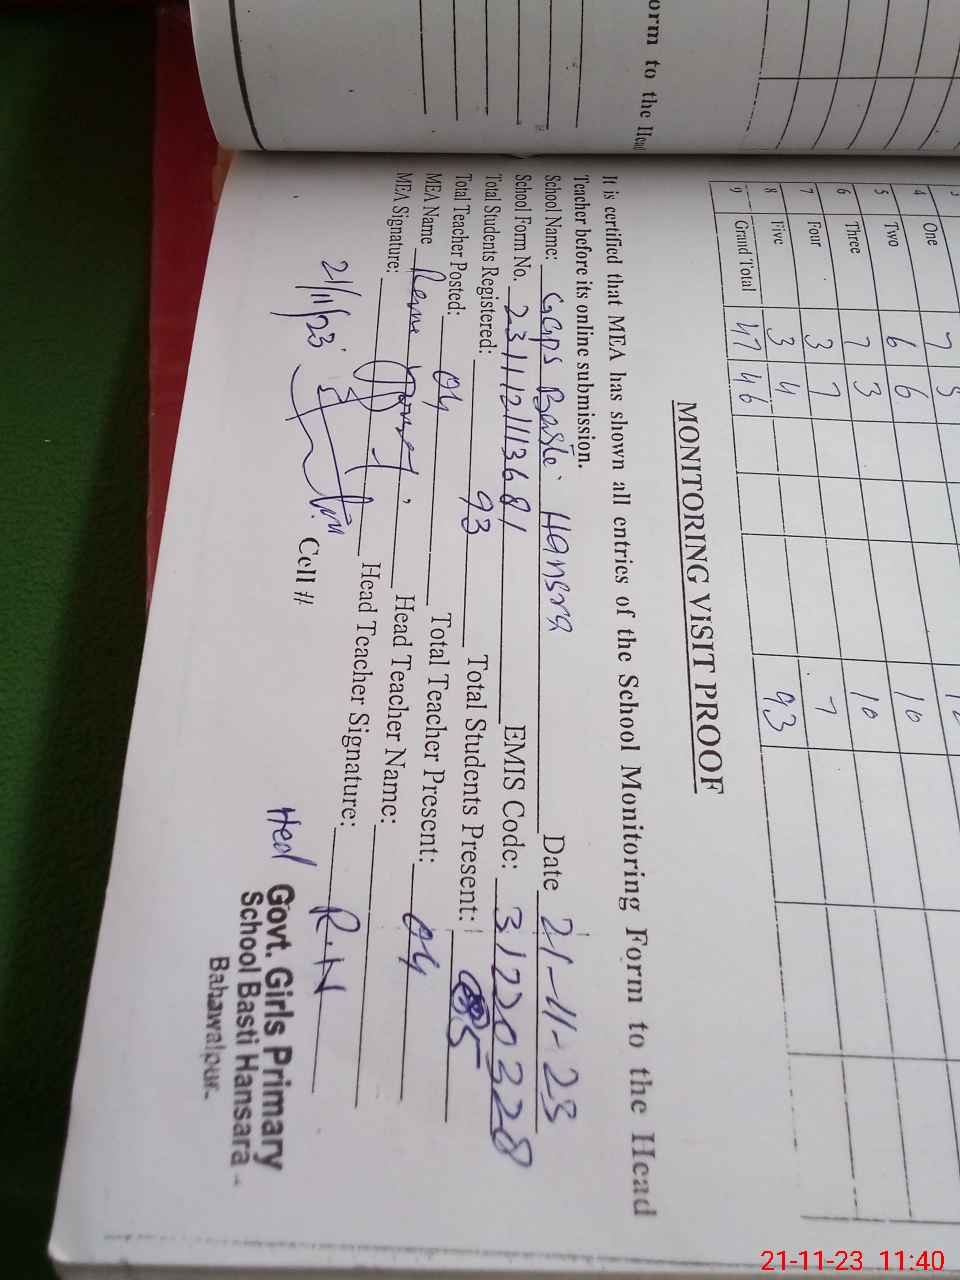 orm to the Head
One 7 5
4 Two 6 6 10
5 Three 7 3 10
6 Four 3 7 7
7 Five 3 4
8
9 Grand Total 47 46 93
MONITORING VISIT PROOF
It is certified that MEA has shown all entries of the School Monitoring Form to the Head
Teacher before its online submission.
School Name: GGPS Basti Hansra Date 21-11-23
School Form No. EMIS Code: 31220328
Total Students Registered: 93 Total Students Present: 85
Total Teacher Posted: 04 Total Teacher Present: 04
MEA Name Head Teacher Name:
MEA Signature: Head Teacher Signature: R.N
21/11/23 Cell #
Hed Govt. Girls Primary
School Basti Hansara
Bahawalpur.
21-11-23 11:40